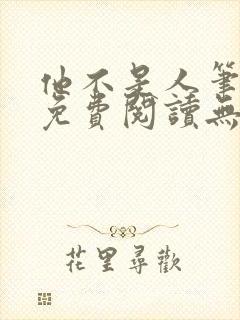 他不是人筆
免費閱讀無
花里尋歡